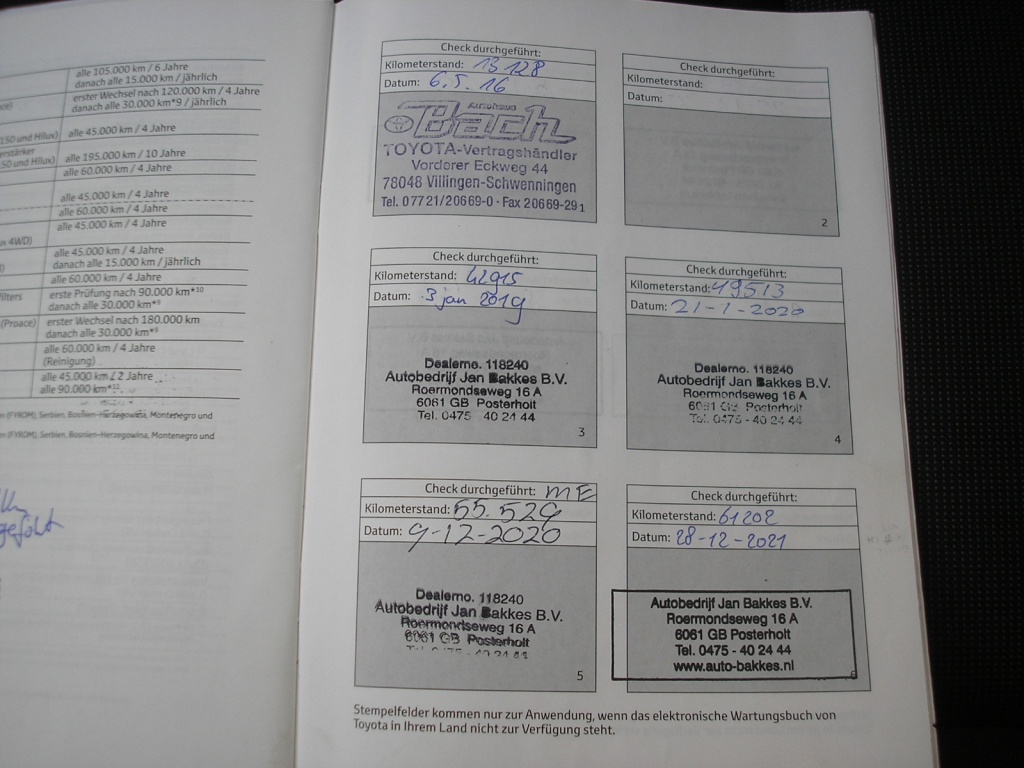 alle 105.000 km / 6 Jahre
danach alle 15.000 km / jährlich
erster Wechsel nach 120.000 km / 4 Jahre
danach alle 30.000 km*9 / jährlich
150 und Hilux) alle 45.000 km / 4 Jahre
erstärker
50 und Hilux) alle 195.000 km / 10 Jahre
alle 60.000 km / 4 Jahre
alle 45.000 km / 4 Jahre
alle 60.000 km / 4 Jahre
alle 45.000 km / 4 Jahre
4WD)
alle 45.000 km / 4 Jahre
danach alle 15.000 km / jährlich
alle 60.000 km / 4 Jahre
filters erste Prüfung nach 90.000 km*10
danach alle 30.000 km*9
(Proace) erster Wechsel nach 180.000 km
danach alle 30.000 km*9
alle 60.000 km / 4 Jahre
(Reinigung)
alle 45.000 km / 2 Jahre
alle 90.000 km*12
en (FYROM), Serbien, Bosnien-Herzegowina, Montenegro und
en (FYROM), Serbien, Bosnien-Herzegowina, Montenegro und
Check durchgeführt:
Kilometerstand: 13 128
Datum: 6.5.16
Autohaus
Bach
TOYOTA-Vertragshändler
Vorderer Eckweg 44
78048 Villingen-Schwenningen
Tel. 07721/20669-0 · Fax 20669-29
1
Check durchgeführt:
Kilometerstand:
Datum:
2
Check durchgeführt:
Kilometerstand: 42915
Datum: 3 jan 2019
Dealerno. 118240
Autobedrijf Jan Bakkes B.V.
Roermondseweg 16 A
6061 GB Posterholt
Tel. 0475 - 40 24 44
3
Check durchgeführt:
Kilometerstand: 49513
Datum: 21-1-2020
Dealerno. 118240
Autobedrijf Jan Bakkes B.V.
Roermondseweg 16 A
6061 GB Posterholt
Tel. 0475 - 40 24 44
4
Check durchgeführt: ME
Kilometerstand: 55.529
Datum: 9-12-2020
Dealerno. 118240
Autobedrijf Jan Bakkes B.V.
Roermondseweg 16 A
6061 GB Posterholt
Tel. 0475 - 40 24 44
5
Check durchgeführt:
Kilometerstand: 61202
Datum: 28-12-2021
Autobedrijf Jan Bakkes B.V.
Roermondseweg 16 A
6061 GB Posterholt
Tel. 0475 - 40 24 44
www.auto-bakkes.nl
6
Stempelfelder kommen nur zur Anwendung, wenn das elektronische Wartungsbuch von
Toyota in Ihrem Land nicht zur Verfügung steht.